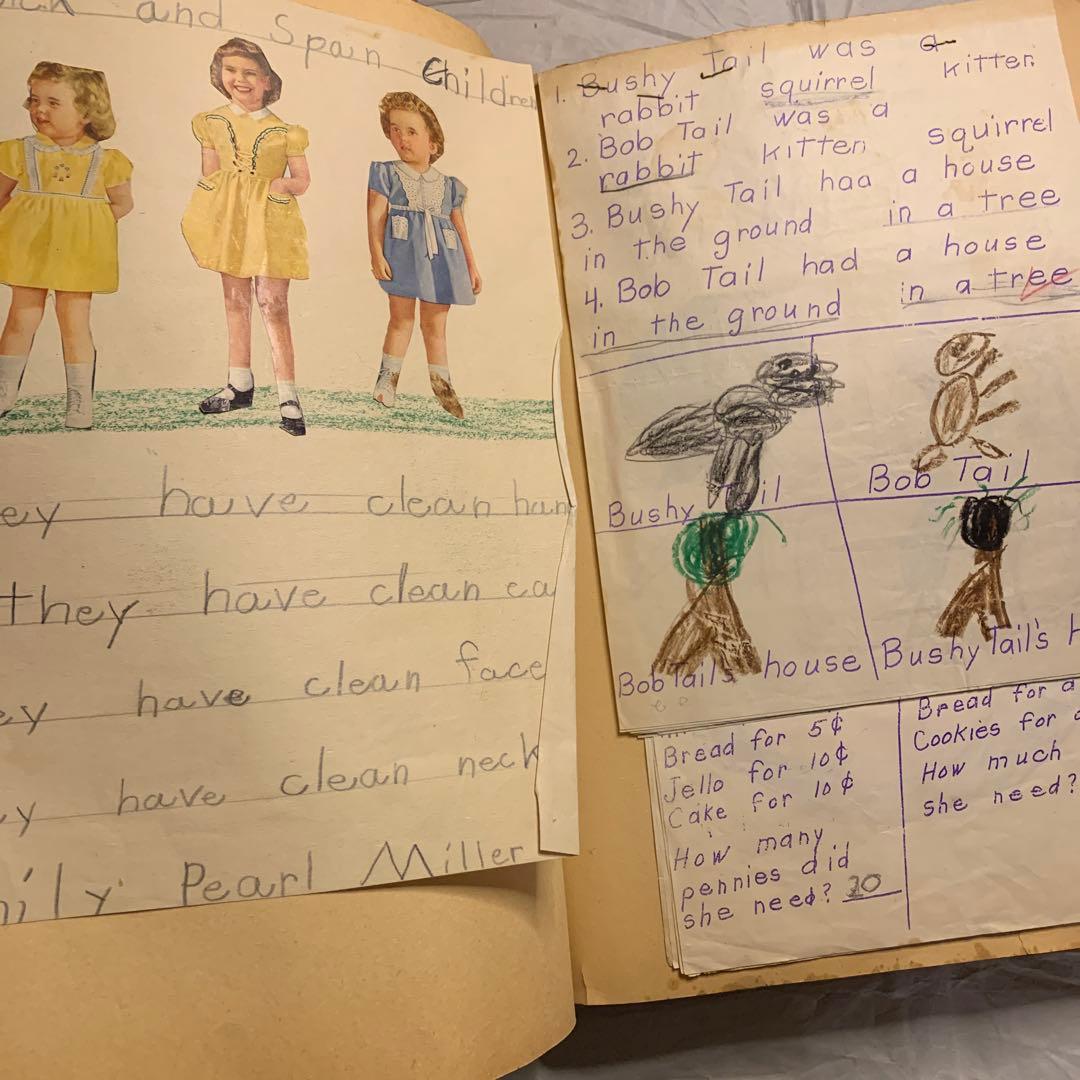 and Span Children
ey have clean han
they have clean ea
ey have clean face
y have clean neck
ily Pearl Miller
1. Bushy Tail was a
rabbit squirrel kitten
2. Bob Tail was a
rabbit kitten squirrel
3. Bushy Tail had a house
in the ground in a tree
4. Bob Tail had a house
in the ground in a tree
Bushy Tail
Bob Tail
Bob Tail's house
Bushy Tail's h
Bread for 5¢
Jello for 10¢
Cake for 10¢
How many
pennies did
she need? 20
Bread for a
Cookies for
How much
she need?